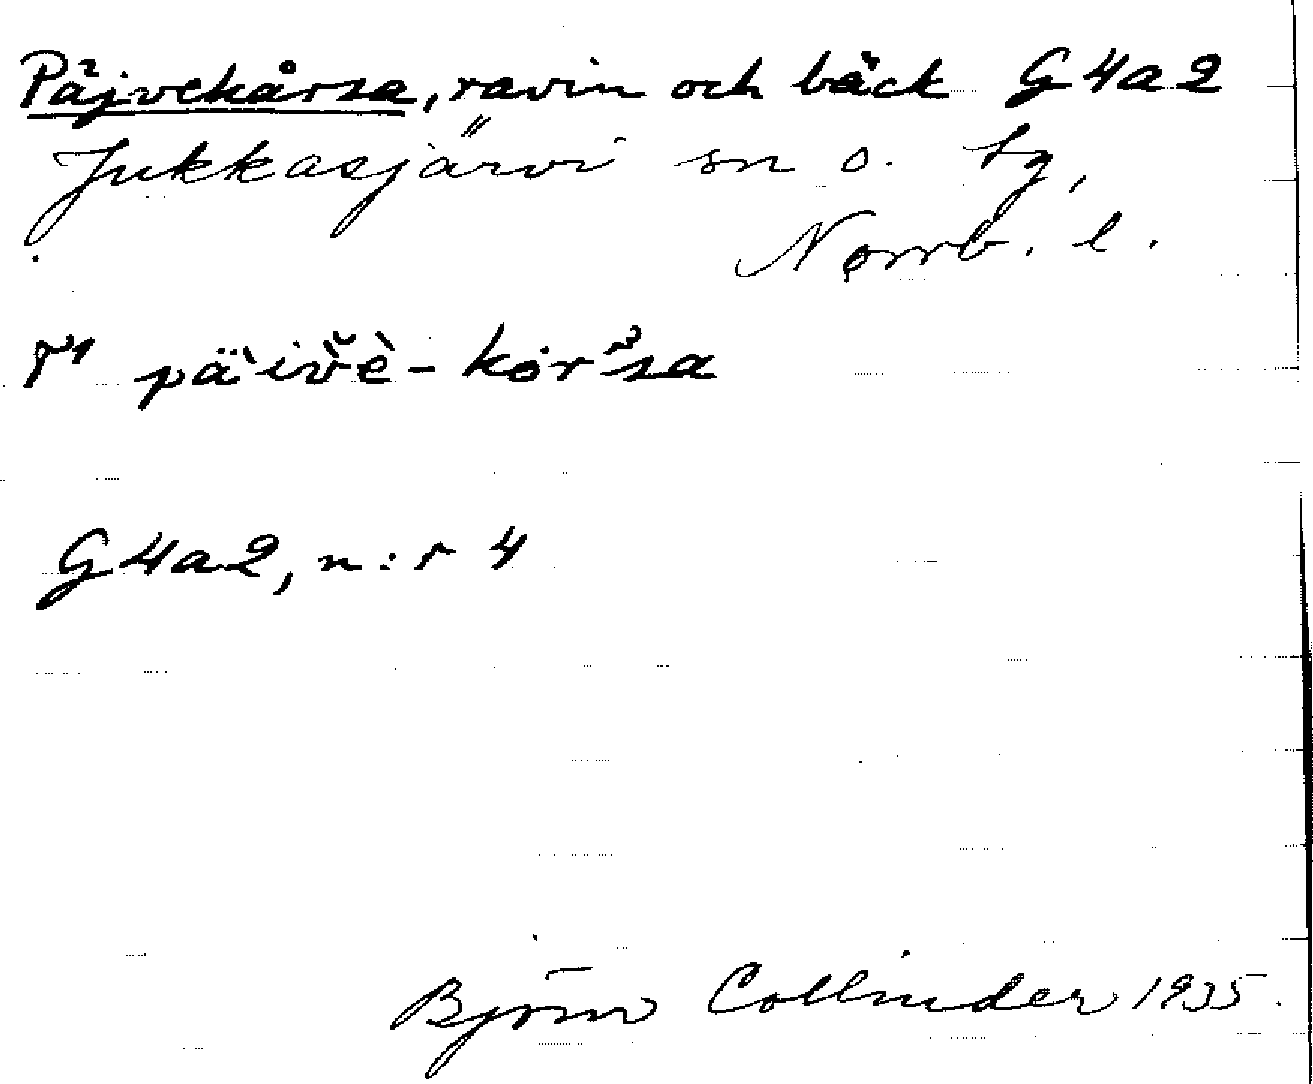 Päjvekårsa, ravin och bäck G4a2
Jukkasjärvi sn o. tg,
Norrb. l.
päi̇v̌è-kọrsa
G4a2, n:r 4
Björn Collinder 1935.